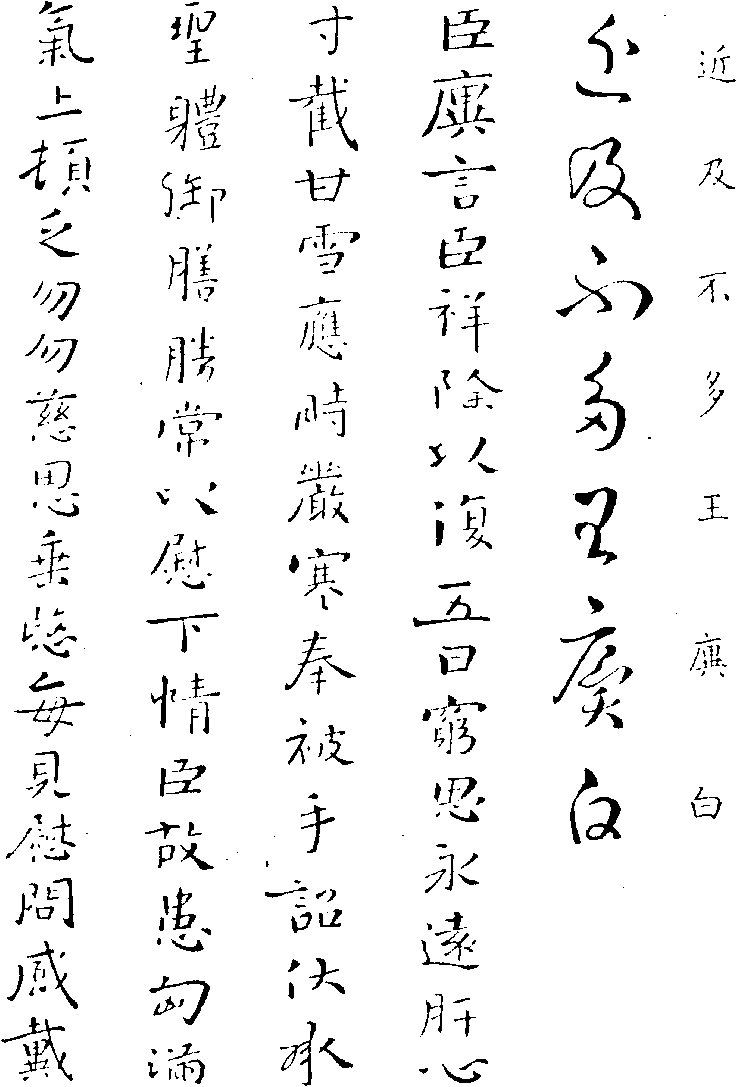 近及不多王廙白
近及不多王廙白
臣廙言臣祥除以復五日窮思永遠肝心
寸截甘雪應時嚴寒奉被手詔伏承
聖體御膳勝常以慰下情臣故患匈滿
氣上頓乏勿勿慈恩垂愍每見慰問感戴